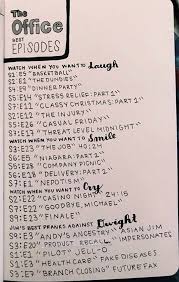 The
Office
BEST
EPISODES
WATCH WHEN YOU WANT TO Laugh
S1:E5 "BASKETBALL"
S2:E1 "THE DUNDIES"
S4:E9 "DINNER PARTY"
S5:E14 "STRESS RELIEF: PART 1"
S7:E11 "CLASSY CHRISTMAS: PART 1"
S2:E12 "THE INJURY"
S5:E26 "CASUAL FRIDAY"
S7:E17 "THREAT LEVEL MIDNIGHT"
WATCH WHEN YOU WANT TO Smile
S3:E23 "THE JOB" 40:24
S5:E11
S6:E "NIAGARA: PART 2"
S5: "COMPANY PICNIC"
S6:E18 "DELIVERY: PART 2"
S7:E1 "NEPOTISM"
WATCH WHEN YOU WANT TO Cry
S2:E22 "CASINO NIGHT" 24:15
S7:E22 "GOODBYE, MICHAEL"
S9:E23 "FINALE"
JIM'S BEST PRANKS AGAINST Dwight
S9:E3 "ANDY'S ANCESTRY" ASIAN JIM
S3:E20 "PRODUCT RECALL" IMPERSONATES
S1:E1 "PILOT" JELL-O
S1:E3 "HEALTHCARE" FAKE DISEASES
S3:E7 "BRANCH CLOSING" FUTURE FAX